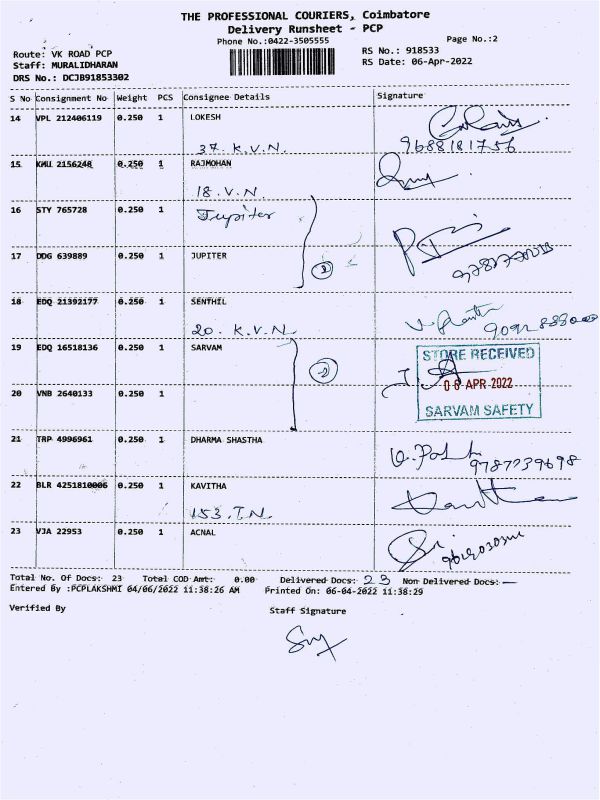 THE PROFESSIONAL COURIERS, Coimbatore
Delivery Runsheet - PCP
Phone No.:0422-3505555
Page No.:2
Route: VK ROAD PCP
RS No.: 918533
Staff: MURALIDHARAN
RS Date: 06-Apr-2022
DRS No.: DCJB91853302
S No Consignment No Weight PCS Consignee Details Signature
14 VPL 212406119 0.250 1 LOKESH
37. K.V.N.
9688181756
15 KMU 2156248 0.250 1 RAJMOHAN
18. V.N.
16 STY 765728 0.250 1 Jupiter
17 DDG 639889 0.250 1 JUPITER
2
18 EDQ 21392177 0.250 1 SENTHIL
20. K.V.N.
19 EDQ 16518136 0.250 1 SARVAM
2
STORE RECEIVED
06 APR 2022
SARVAM SAFETY
20 VNB 2640133 0.250 1
21 TRP 4996961 0.250 1 DHARMA SHASTHA
9787739698
22 BLR 4251810006 0.250 1 KAVITHA
153. T.N.
23 VJA 22953 0.250 1 ACNAL
Total No. Of Docs: 23 Total COD Amt: 0.00 Delivered Docs: 23 Non Delivered Docs: —
Entered By :PCPLAKSHMI 04/06/2022 11:38:26 AM Printed On: 06-04-2022 11:38:29
Verified By
Staff Signature